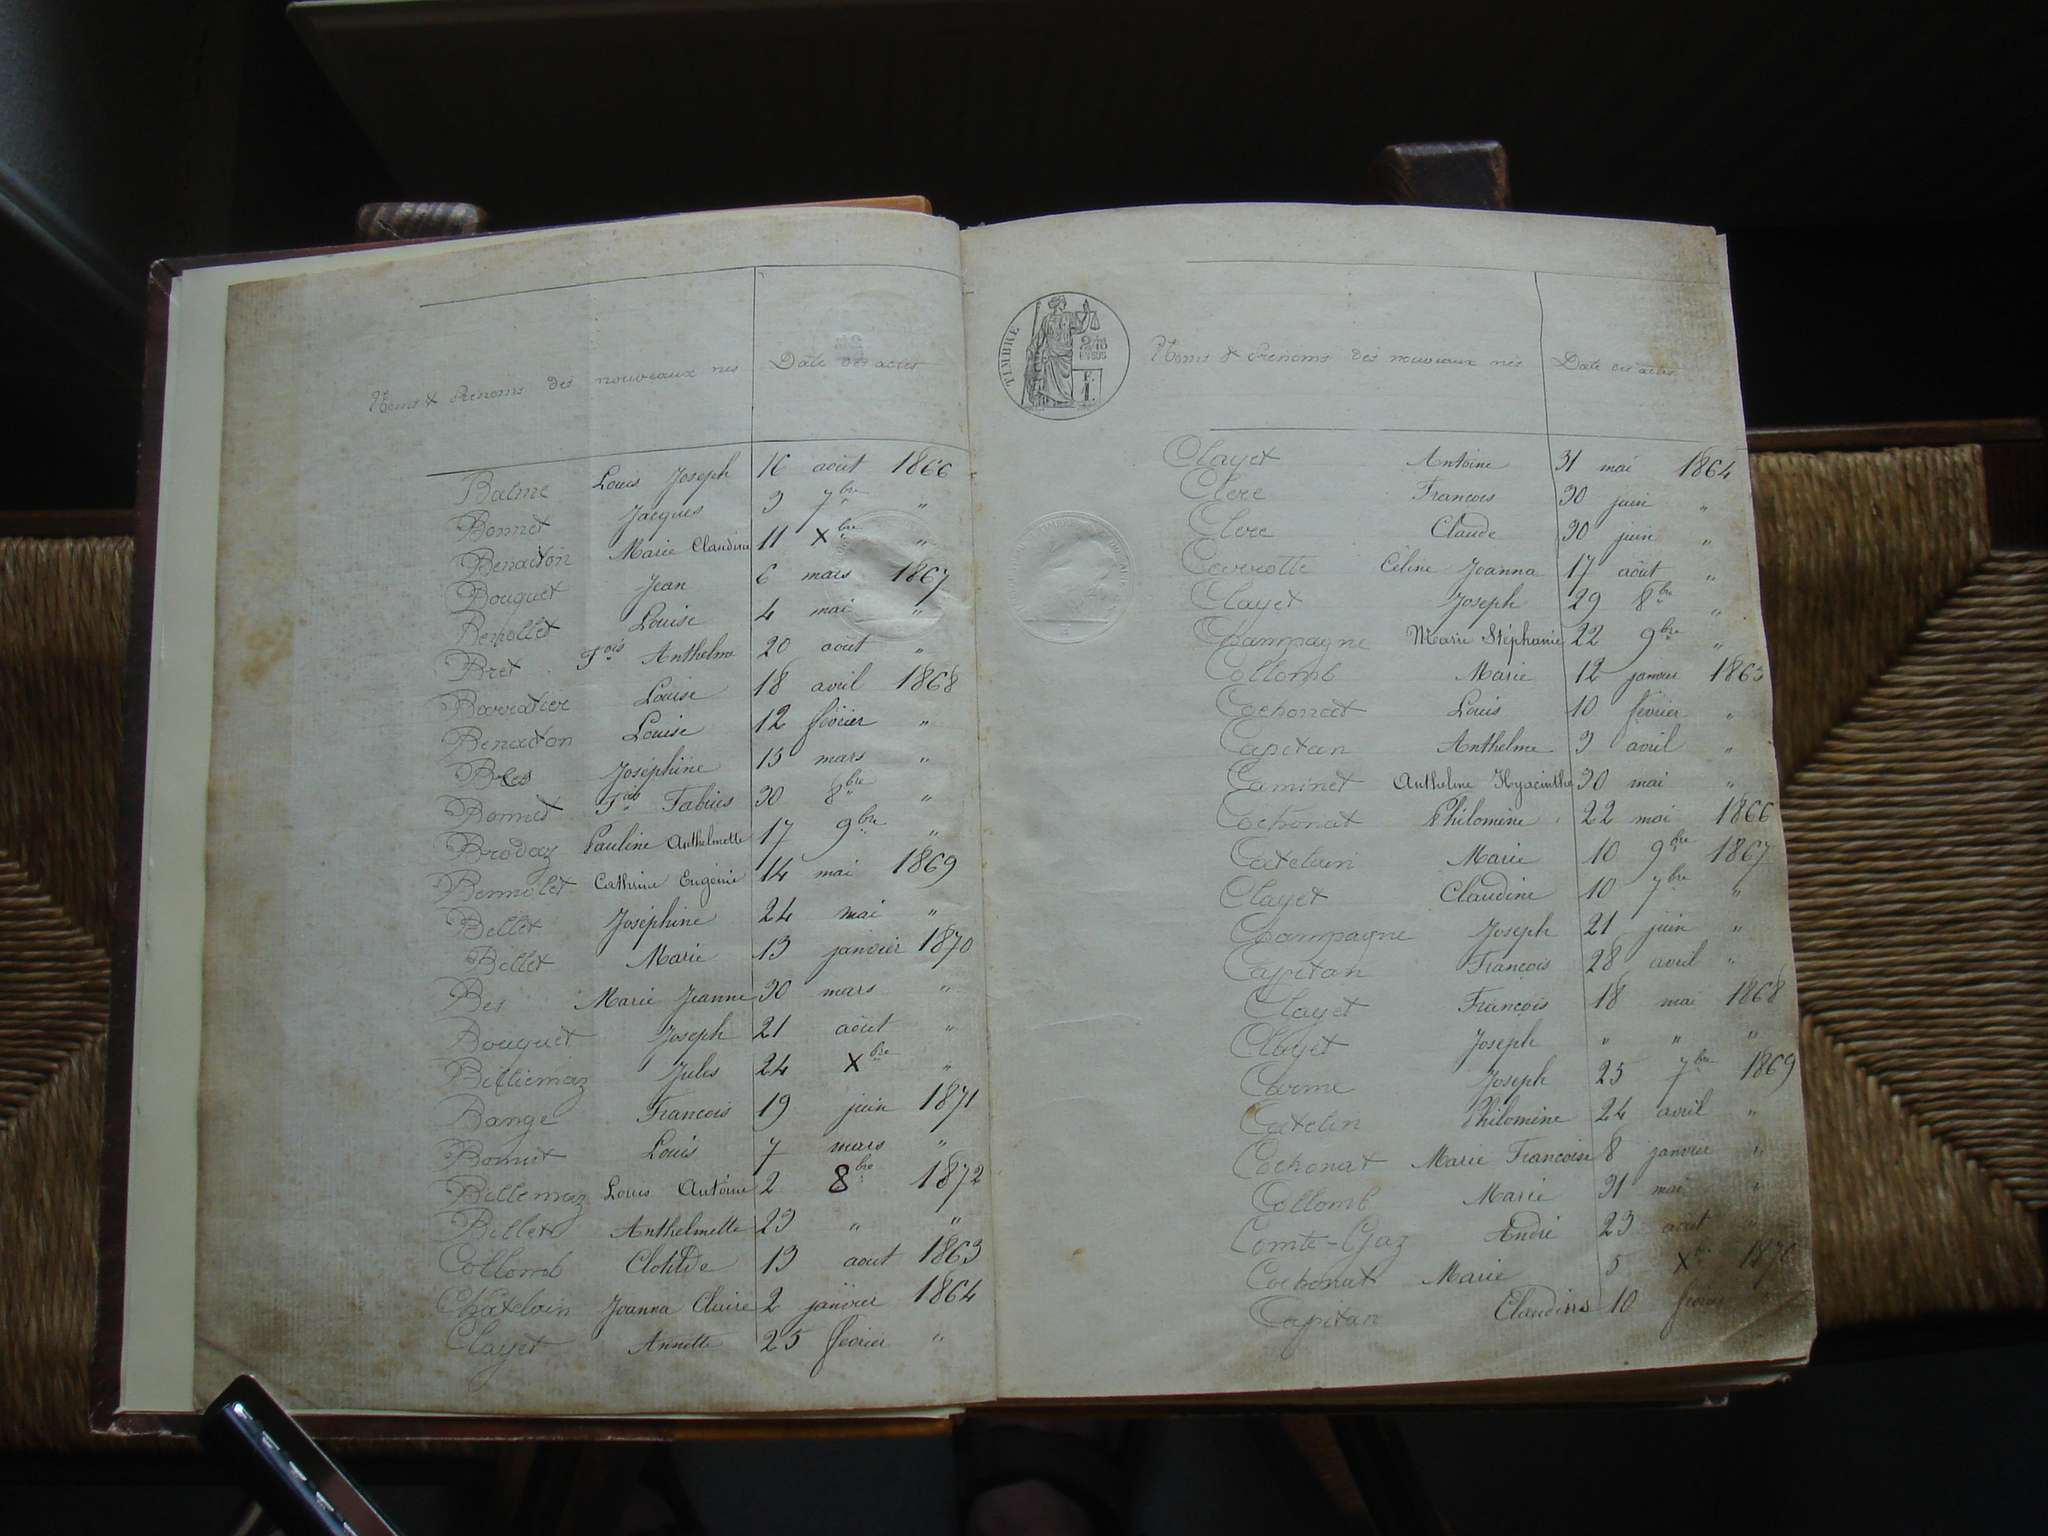 Noms & Prénoms des nouveaux nés Date des actes
Balme Louis Joseph 16 août 1866
Bonnet Jacques 3 7bre "
Benaton Marie Claudine 11 Xbre "
Bouquet Jean 6 mars 1867
Berthollet Louise 4 mai "
Bret Fois Anthelme 20 août "
Bovratier Louise 18 avril 1868
Benaton Louise 12 février "
Bres Joséphine 15 mars "
Bonnet Fois Fabius 30 8bre "
Brodaz Pauline Anthelmette 17 9bre "
Catherine Eugénie 14 mai 1869
Billet Joséphine 24 mai "
Billet Marie 13 janvier 1870
Bes Marie Jeanne 30 mars "
Bouquet Joseph 21 août "
Billiemaz Jules 24 Xbre "
Bange Francois 19 juin 1871
Bonnet Louis 7 mars "
Billemaz Louis Antoine 2 8bre 1872
Billet Anthelmette 23 " "
Collomb Clotilde 13 aout 1863
Châtelain Joanna Claire 2 janvier 1864
Clayet Annette 25 février "
TIMBRE
2/10
EN SUS
F.
1.
Noms & Prénoms des nouveaux nés Date des actes
Clayet Antoine 31 mai 1864
Clerc Francois 30 juin "
Clerc Claude 30 juin "
Céline Joanna 17 août "
Clayet Joseph 29 8bre "
Champagne Marie Stéphanie 22 9bre "
Collomb Marie 12 janvier 1865
Cochonat Louis 10 février "
Capitan Anthelme 3 avril "
Caminet Anthelme Hyacinthe 30 mai "
Cochonat Philomène 22 mai 1866
Catelain Marie 10 9bre 1867
Clayet Claudine 10 7bre "
Champagne Joseph 21 juin "
Capitan François 28 avril "
Clayet François 18 mai 1868
Clayet Joseph " " "
Carme Joseph 25 7bre 1869
Catelin Philomène 24 avril "
Cochonat Marie Francoise 8 janvier "
Collomb Marie 31 mai "
Comte-Gaz André 23 août "
Cochonat Marie 5 Xbre 1870
Capitan Claudius 10 février "